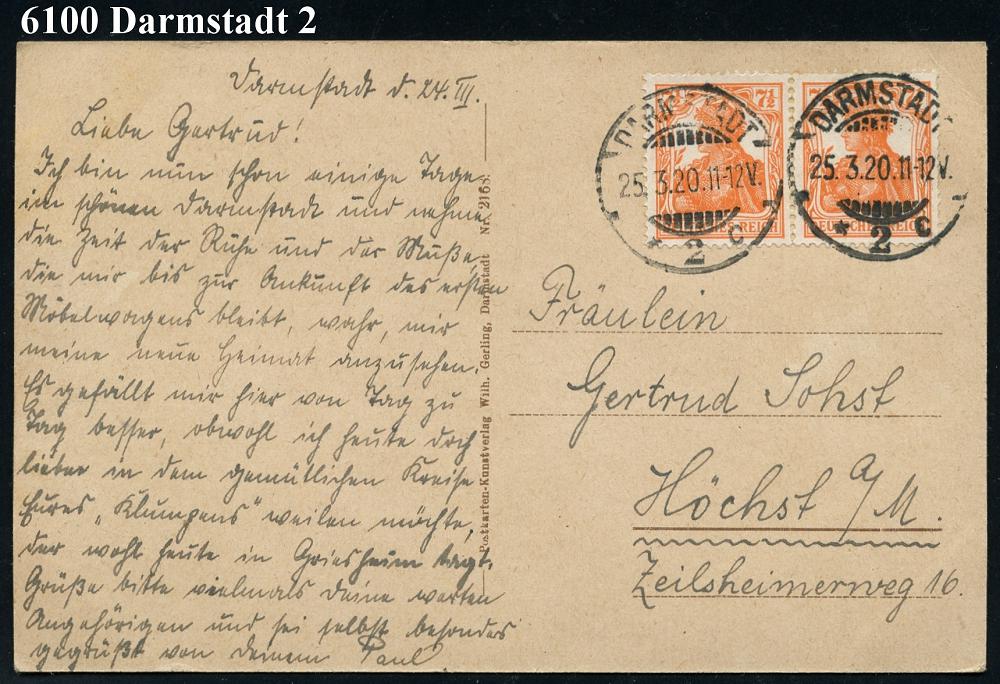 6100 Darmstadt 2
Darmstadt d. 24. III.
Liebe Gertrud!
Ich bin nun schon einige Tage
im schönen Darmstadt und nehme
die Zeit der Ruhe und der Muße,
die mir bis zur Ankunft des ersten
Möbelwagens bleibt, wahr, mir
meine neue Heimat anzusehen.
Es gefällt mir hier von Tag zu
Tag besser, obwohl ich heute doch
lieber in dem gemütlichen Kreise
Eures „Klumpens" weilen möchte,
der wohl heute in Griesheim tagt.
Grüße bitte vielmals deine werten
Angehörigen und sei selbst besonders
gegrüßt von deinem Paul
Postkarten-Kunstverlag Wilh. Gerling, Darmstadt Nr. 2165.
DARMSTADT
25.3.20.11-12V.
* 2 c
DARMSTADT
25.3.20.11-12V.
* 2 c
7½
DEUTSCHES REICH
Fräulein
Gertrud Sohst
Höchst a/M.
Zeilsheimerweg 16.